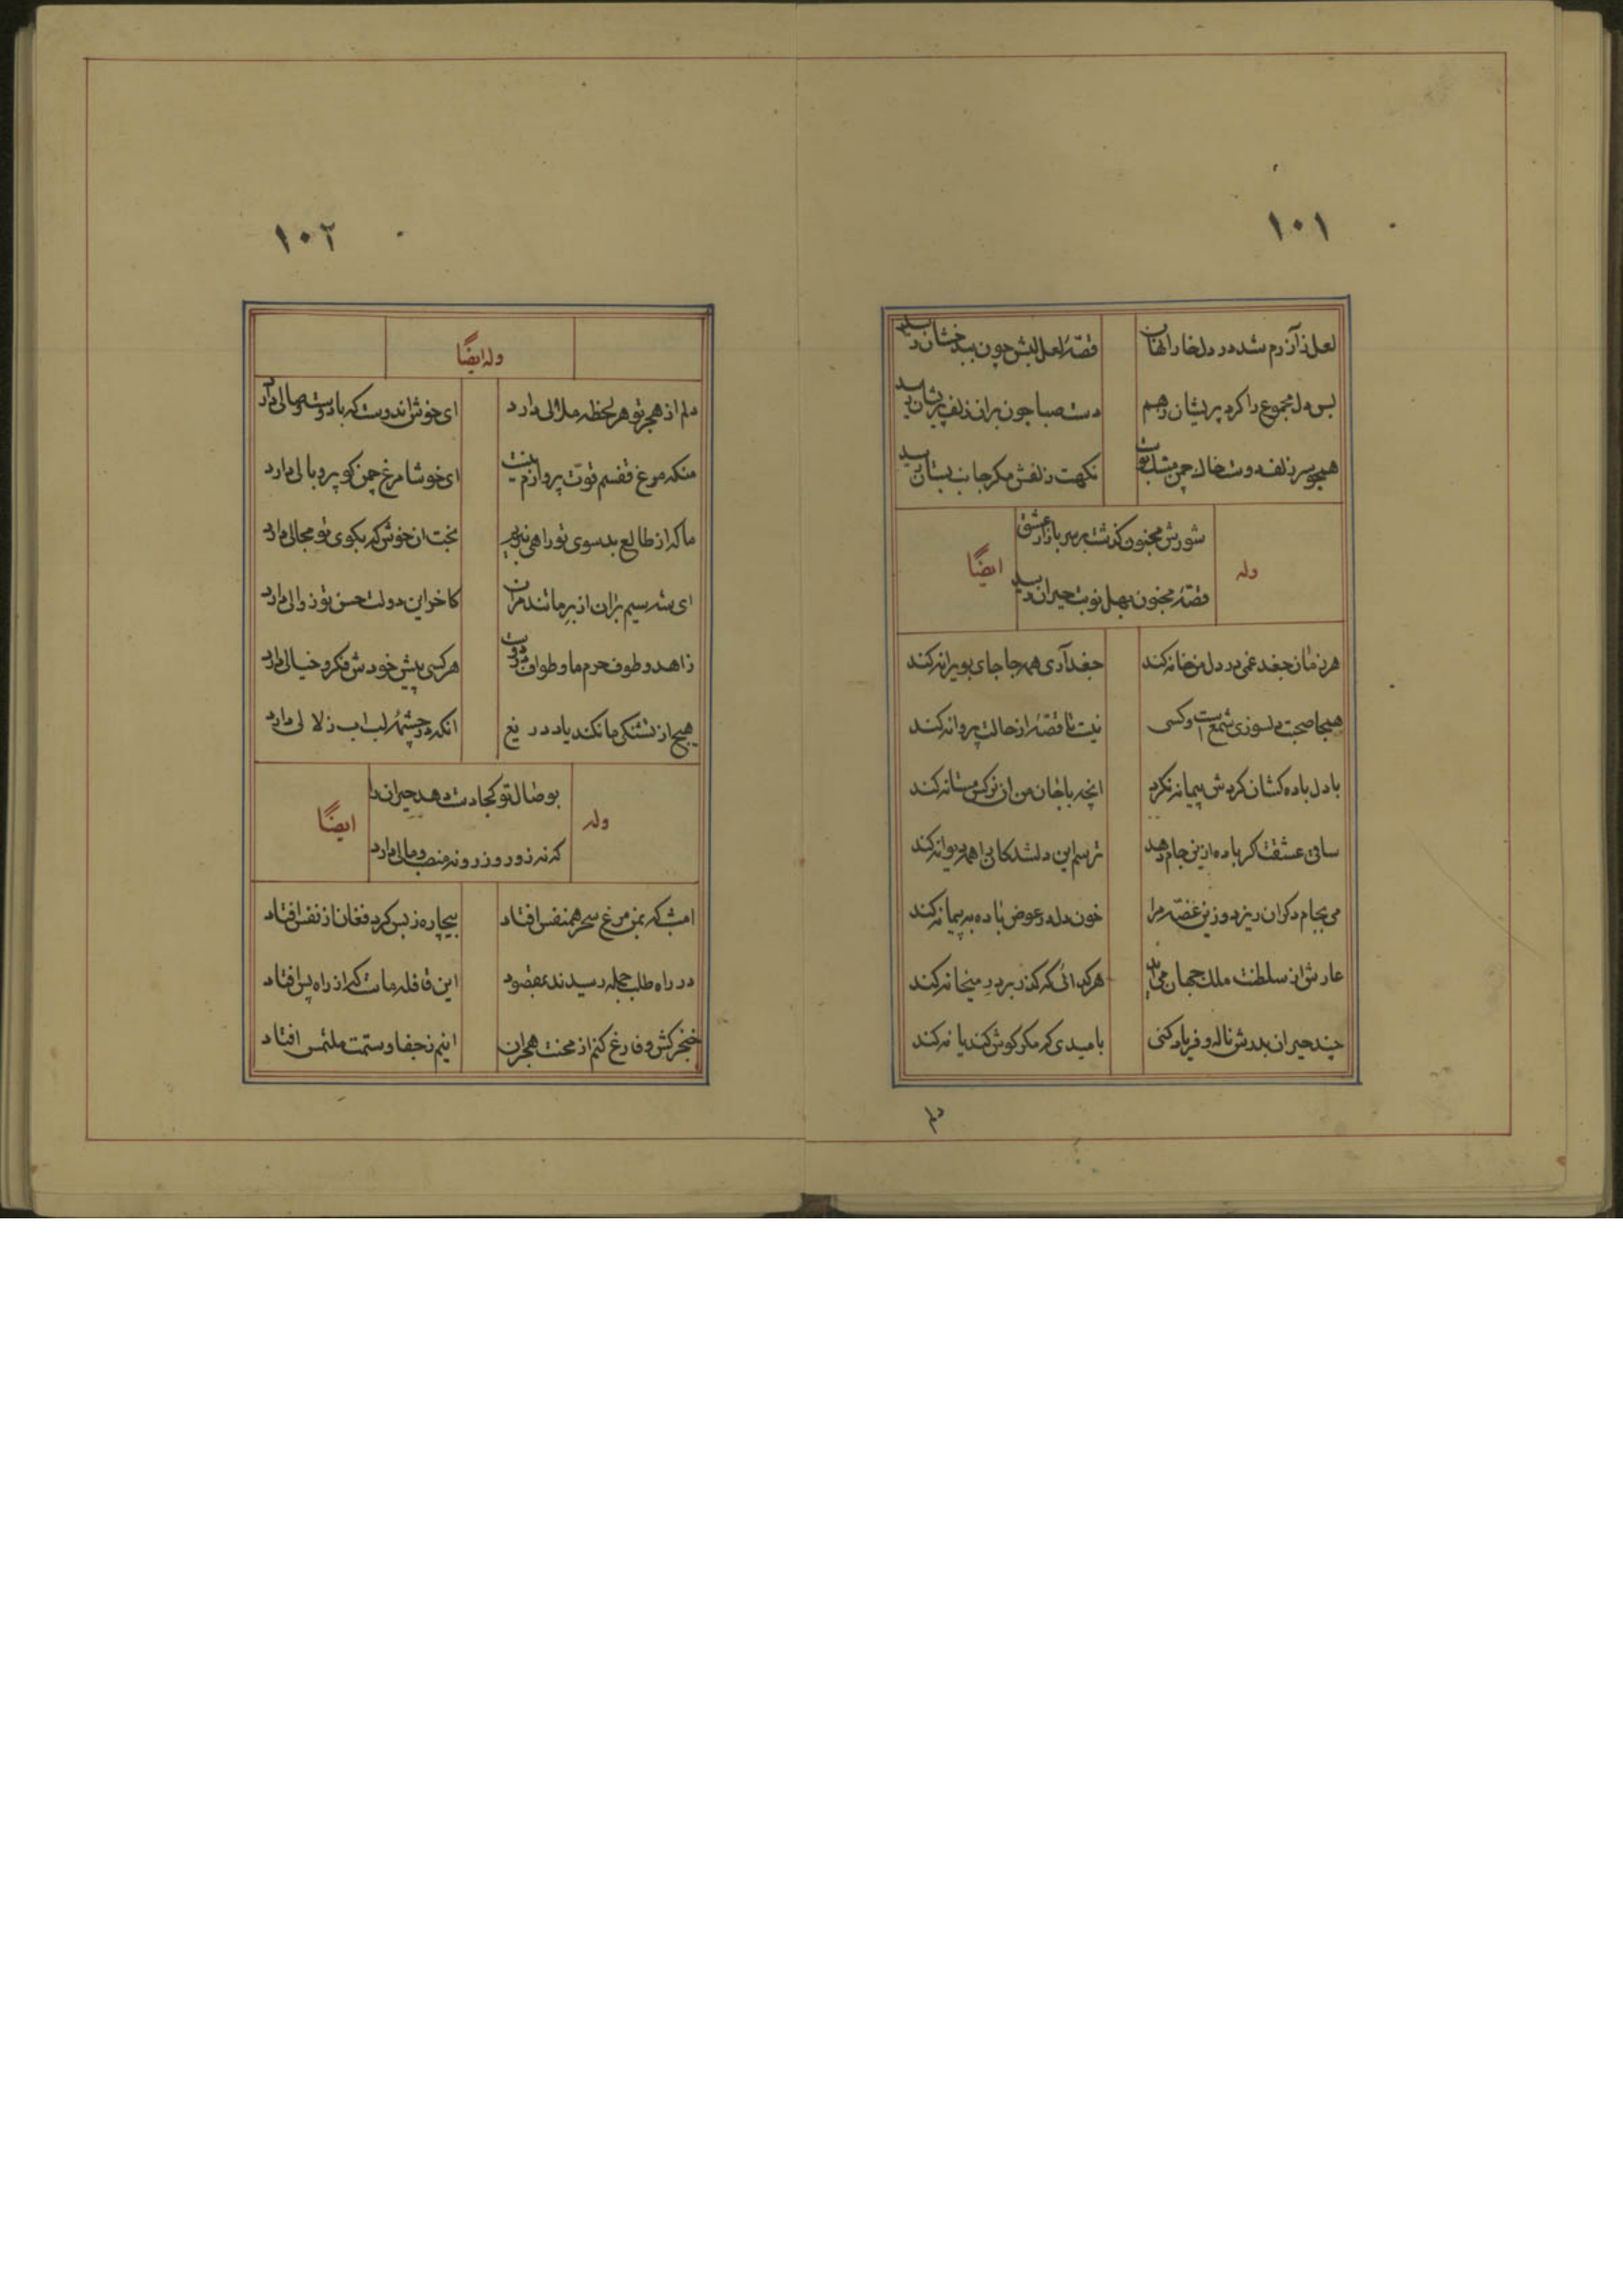 ١٠١
لعل زآن رم شده در دل خارا نهان
قصّهٔ لعل لبش چون ببدخشان رسید
بس دل مجموع را کرد پریشان و هم
دست صبا چون بران زلف پریشان رسید
همچو سر زلف دوست خاک چمن مشکبوست
نکهت زلفش مکر جانب بستان رسید
شورش مجنون کذشت بر سر بازار عشق
وله
ایضًا
قصّهٔ مجنون بهل نوبت حیران رسید
هر زمان جغد غمی در دل من خانه کند
جغد آری همه جا جای بویرانه کند
هیجا صحبت دلسوزی شمعست و کسی
نیست تا قصّهٔ از حالت پروانه کند
با دل باده کشان کردش پیمانه نکرد
انچه با جان من ان نرکس مستانه کند
ساقی عشقت اکر باده ازین جام دهد
ترسم این دلشدکان را همه دیوانه کند
می بجام دکران ریزد و زین غصّه مرا
خون دل در عوض باده به پیمانه کند
عارش از سلطنت ملک جهان می اید
هر کدائی که کذر بر در میخانه کند
چند حیران بدرش ناله و فریاد کنی
بامیدی که مکر کوش کند یا نه کند
١٠٢
وله ایضًا
دلم از هجر تو هر لحظه ملالی دارد
ای خوش اندوست که با دوست وصالی دارد
منکه مرغ قفسم قوّت پروازم نیست
ای خوشا مرغ چمن کو پر و بالی دارد
ما که از طالع بد سوی تو راهی نبریم
بخت ان خوش که بکوی تو مجالی دارد
ای شه سیم بران از بر ما تند مران
کاخر این دولت حسن تو زوالی دارد
زاهد و طوف حرم ما و طواف در دوست
هر کسی پیش خودش فکر و خیالی دارد
هیچ از تشنکی ما نکند یاد دریغ
انکه در چشمهٔ لب اب زلالی دارد
بوصال تو کجا دست دهد حیران را
وله
ایضًا
که نه زور و زر و نه منصب و مالی دارد
امشب که بمن مرغ سحر همنفس افتاد
بیچاره ز بس کرد فغان از نفس افتاد
در راه طلب جمله رسیدند بمقصود
این قافلهٔ ماست که از راه پس افتاد
خنجر کش و فارغ کنم از محنت هجران
اینم ز جفا و ستمت ملتمس افتاد